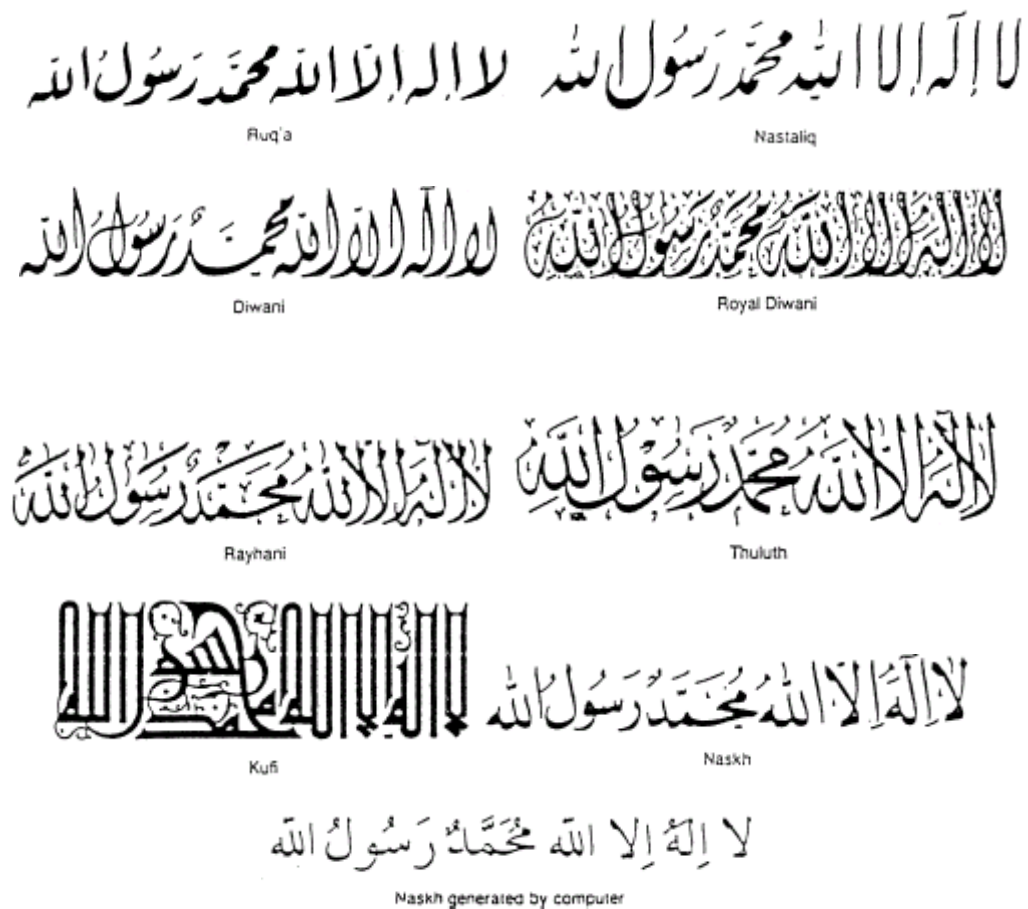 لا اله الا الله محمد رسول الله
Ruq'a
لا إله إلا الله محمد رسول الله
Nastaliq
لا اله الا الله محمد رسول الله
Diwani
لا اله الا الله محمد رسول الله
Royal Diwani
لا اله الا الله محمد رسول الله
Rayhani
لا اله الا الله محمد رسول الله
Thuluth
لا اله الا الله محمد رسول الله
Kufi
لا اله الا الله محمد رسول الله
Naskh
لا اِلهَ اِلا الله مُحَمَّدٌ رَسُولُ الله
Naskh generated by computer